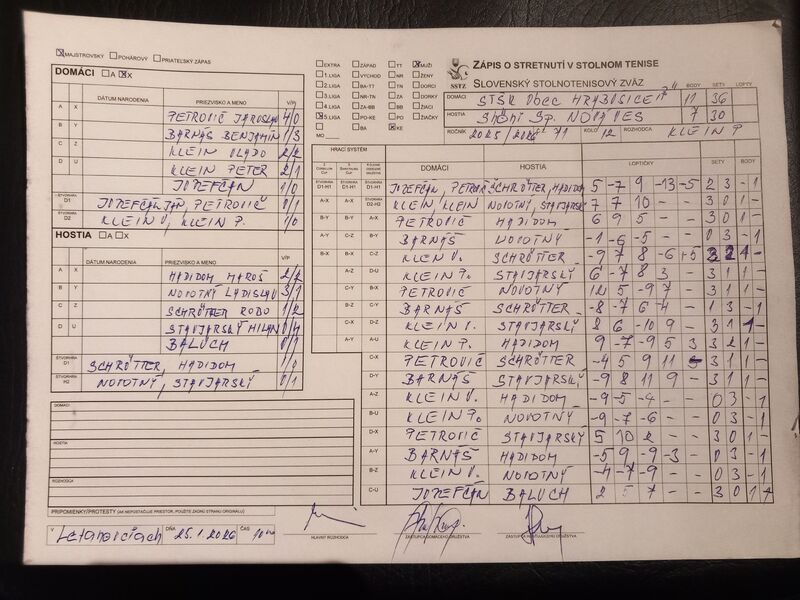 MAJSTROVSKÝ POHÁROVÝ PRIATEĽSKÝ ZÁPAS
DOMÁCI A X
DÁTUM NARODENIA PRIEZVISKO A MENO V/P
A X PETROVIČ JAROSLAV 4/0
B Y BARNÁŠ BENJAMÍN 1/3
C Z KLEIN VLADO 2/2
D U KLEIN PETER 2/1
JOZEFČÁN 1/0
ŠTVORHRA D1 JOZEFČÁN, PETROVIČ 0/1
ŠTVORHRA D2 KLEIN V, KLEIN P. 1/0
HOSTIA A X
DÁTUM NARODENIA PRIEZVISKO A MENO V/P
A X HADIDOM MAROŠ 2/2
B Y NOVOTNÝ LADISLAV 3/1
C Z SCHRÖTTER ROBO 1/2
D U STAVJARSKÝ MILAN 0/4
BALUCH 0/1
ŠTVORHRA D1 SCHRÖTTER, HADIDOM 1/0
ŠTVORHRA H2 NOVOTNÝ, STAVJARSKÝ 0/1
DOMÁCI
HOSTIA
ROZHODCA
PRIPOMIENKY/PROTESTY (AK NEPOSTAČUJE PRIESTOR, POUŽITE ZADNÚ STRANU ORIGINÁLU)
V Letanovciach DŇA 25.1.2026 ČAS 10
HLAVNÝ ROZHODCA
ZÁSTUPCA DOMÁCEHO DRUŽSTVA
ZÁSTUPCA HOSŤUJÚCEHO DRUŽSTVA
EXTRA ZÁPAD TT MUŽI
1.LIGA VÝCHOD NR ŽENY
2.LIGA BA-TT TN DORCI
3.LIGA NR-TN ZA DORKY
4.LIGA ZA-BB BB ŽIACI
5.LIGA PO-KE PO ŽIAČKY
MO BA KE
SSTZ
ZÁPIS O STRETNUTÍ V STOLNOM TENISE
SLOVENSKÝ STOLNOTENISOVÝ ZVÄZ
BODY SETY LOPTY
DOMÁCI STŠK Obec HRABUŠICE 11 36
HOSTIA 7 30
ROČNÍK 2025/2026 KOLO 12 ROZHODCA KLEIN P
HRACÍ SYSTÉM
DOMÁCI HOSTIA LOPTIČKY SETY BODY
D1-H1 D1-H1 D1-H1 JOZEFČÁN, PETROVIČ SCHRÖTTER, HADIDOM 5 -7 9 -13 -5 2 3 - 1
A-X X-X D2-H2 KLEIN, KLEIN NOVOTNÝ, STAVJARSKÝ 7 7 10 - - 3 0 1 -
B-Y B-Y A-X PETROVIČ HADIDOM 6 9 5 - - 3 0 1 -
A-Y C-Z B-Y BARNÁŠ NOVOTNÝ -1 -6 -5 - - 0 3 - 1
B-X B-X C-Z KLEIN V. SCHRÖTTER -9 7 8 -6 +5 3 2 1 -
A-Z D-U KLEIN P. STAVJARSKÝ 6 -7 8 3 - 3 1 1 -
C-Y B-X PETROVIČ NOVOTNÝ 12 5 -9 7 - 3 1 1 -
B-Z C-Y BARNÁŠ SCHRÖTTER -8 -7 6 -4 - 1 3 - 1
C-X D-Z KLEIN V. STAVJARSKÝ 8 6 -10 9 - 3 1 1 -
A-Y A-U KLEIN P. HADIDOM 9 -7 -9 5 3 3 2 1 -
C-X PETROVIČ SCHRÖTTER -4 5 9 11 3 1 1 -
D-Y BARNÁŠ STAVJARSKÝ -9 8 11 9 - 3 1 1 -
A-Z KLEIN V. HADIDOM -9 -5 -4 - - 0 3 - 1
B-U KLEIN P. NOVOTNÝ -9 -7 -6 - - 0 3 - 1
D-X PETROVIČ STAVJARSKÝ 5 10 2 - - 3 0 1 -
A-Y BARNÁŠ HADIDOM -5 9 -9 -3 - 0 3 - 1
B-Z KLEIN V. NOVOTNÝ -4 -7 -9 - - 0 3 - 1
C-U JOZEFČÁN BALUCH 2 5 7 - - 3 0 1 -